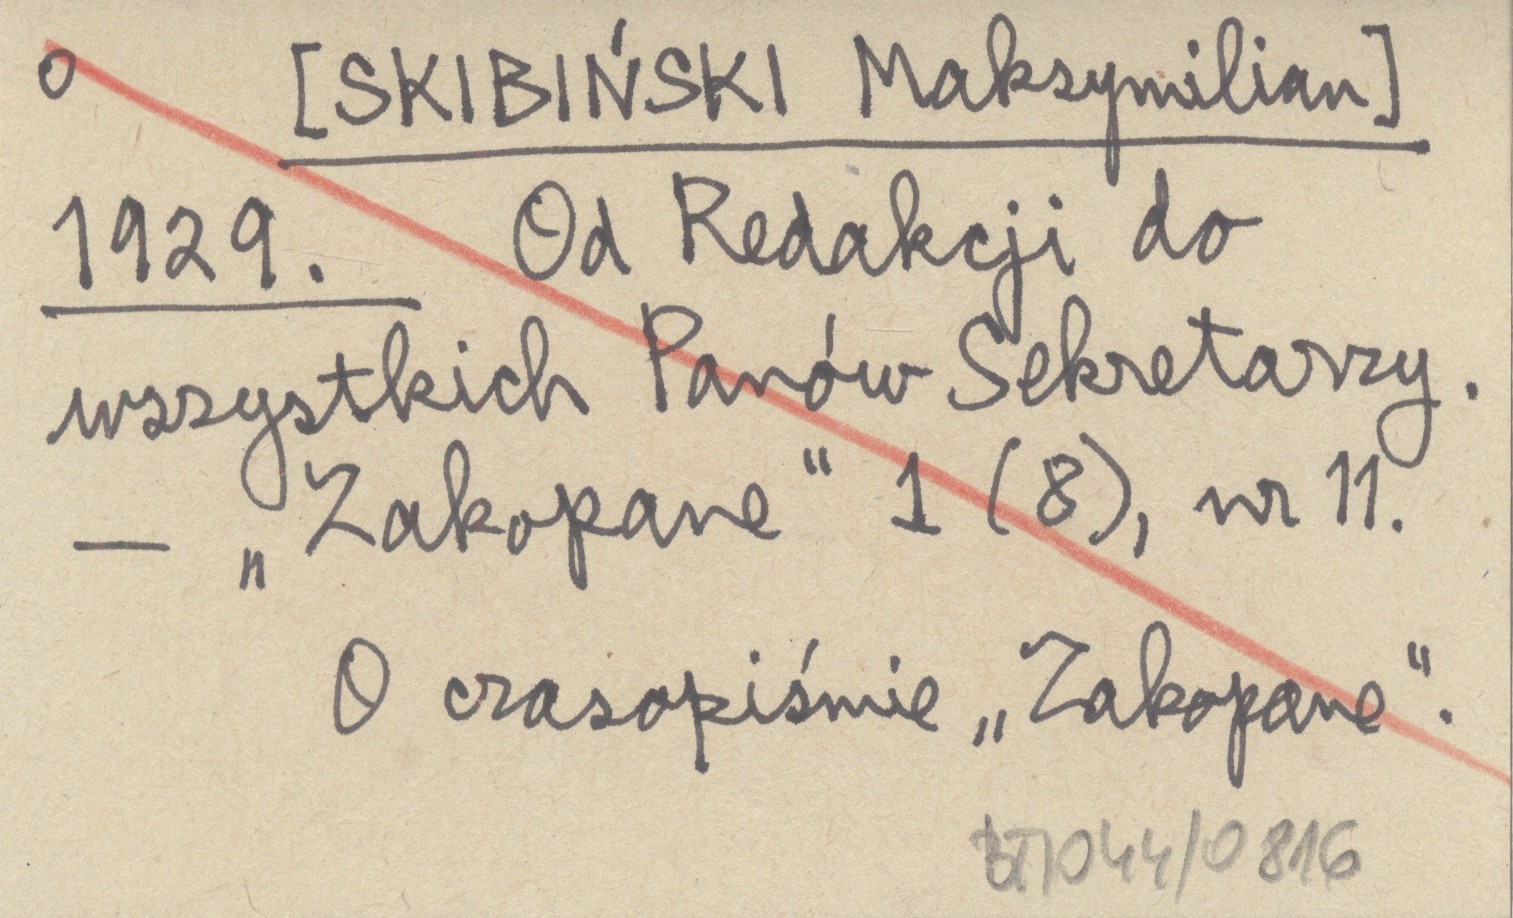 o [SKIBIŃSKI Maksymilian]
1929. Od Redakcji do
wszystkich Panów Sekretarzy.
— „Zakopane“ 1 (8), nr 11.
O czasopiśmie „Zakopane“.
BT/044/0816